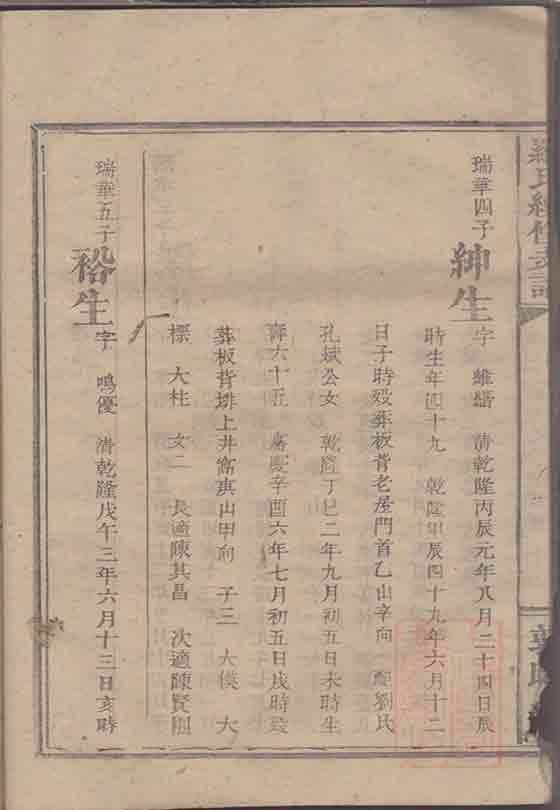 羅氏續修支譜
瑞華四子
紳生
字 維縉 清乾隆丙辰元年八月二十四日辰
時生年四十九 乾隆甲辰四十九年六月十二
日子時歿葬板背老屋門首乙山辛向 配劉氏
孔斌公女 乾隆丁巳二年九月初五日未時生
壽六十五 嘉慶辛酉六年七月初五日戌時歿
葬板背排上井窩庚山甲向 子三 大僕 大
標 大柱 女二 長適陳其昌 次適陳賢剛
瑞華五子
裕生
字 鳴優 清乾隆戊午三年六月十三日亥時